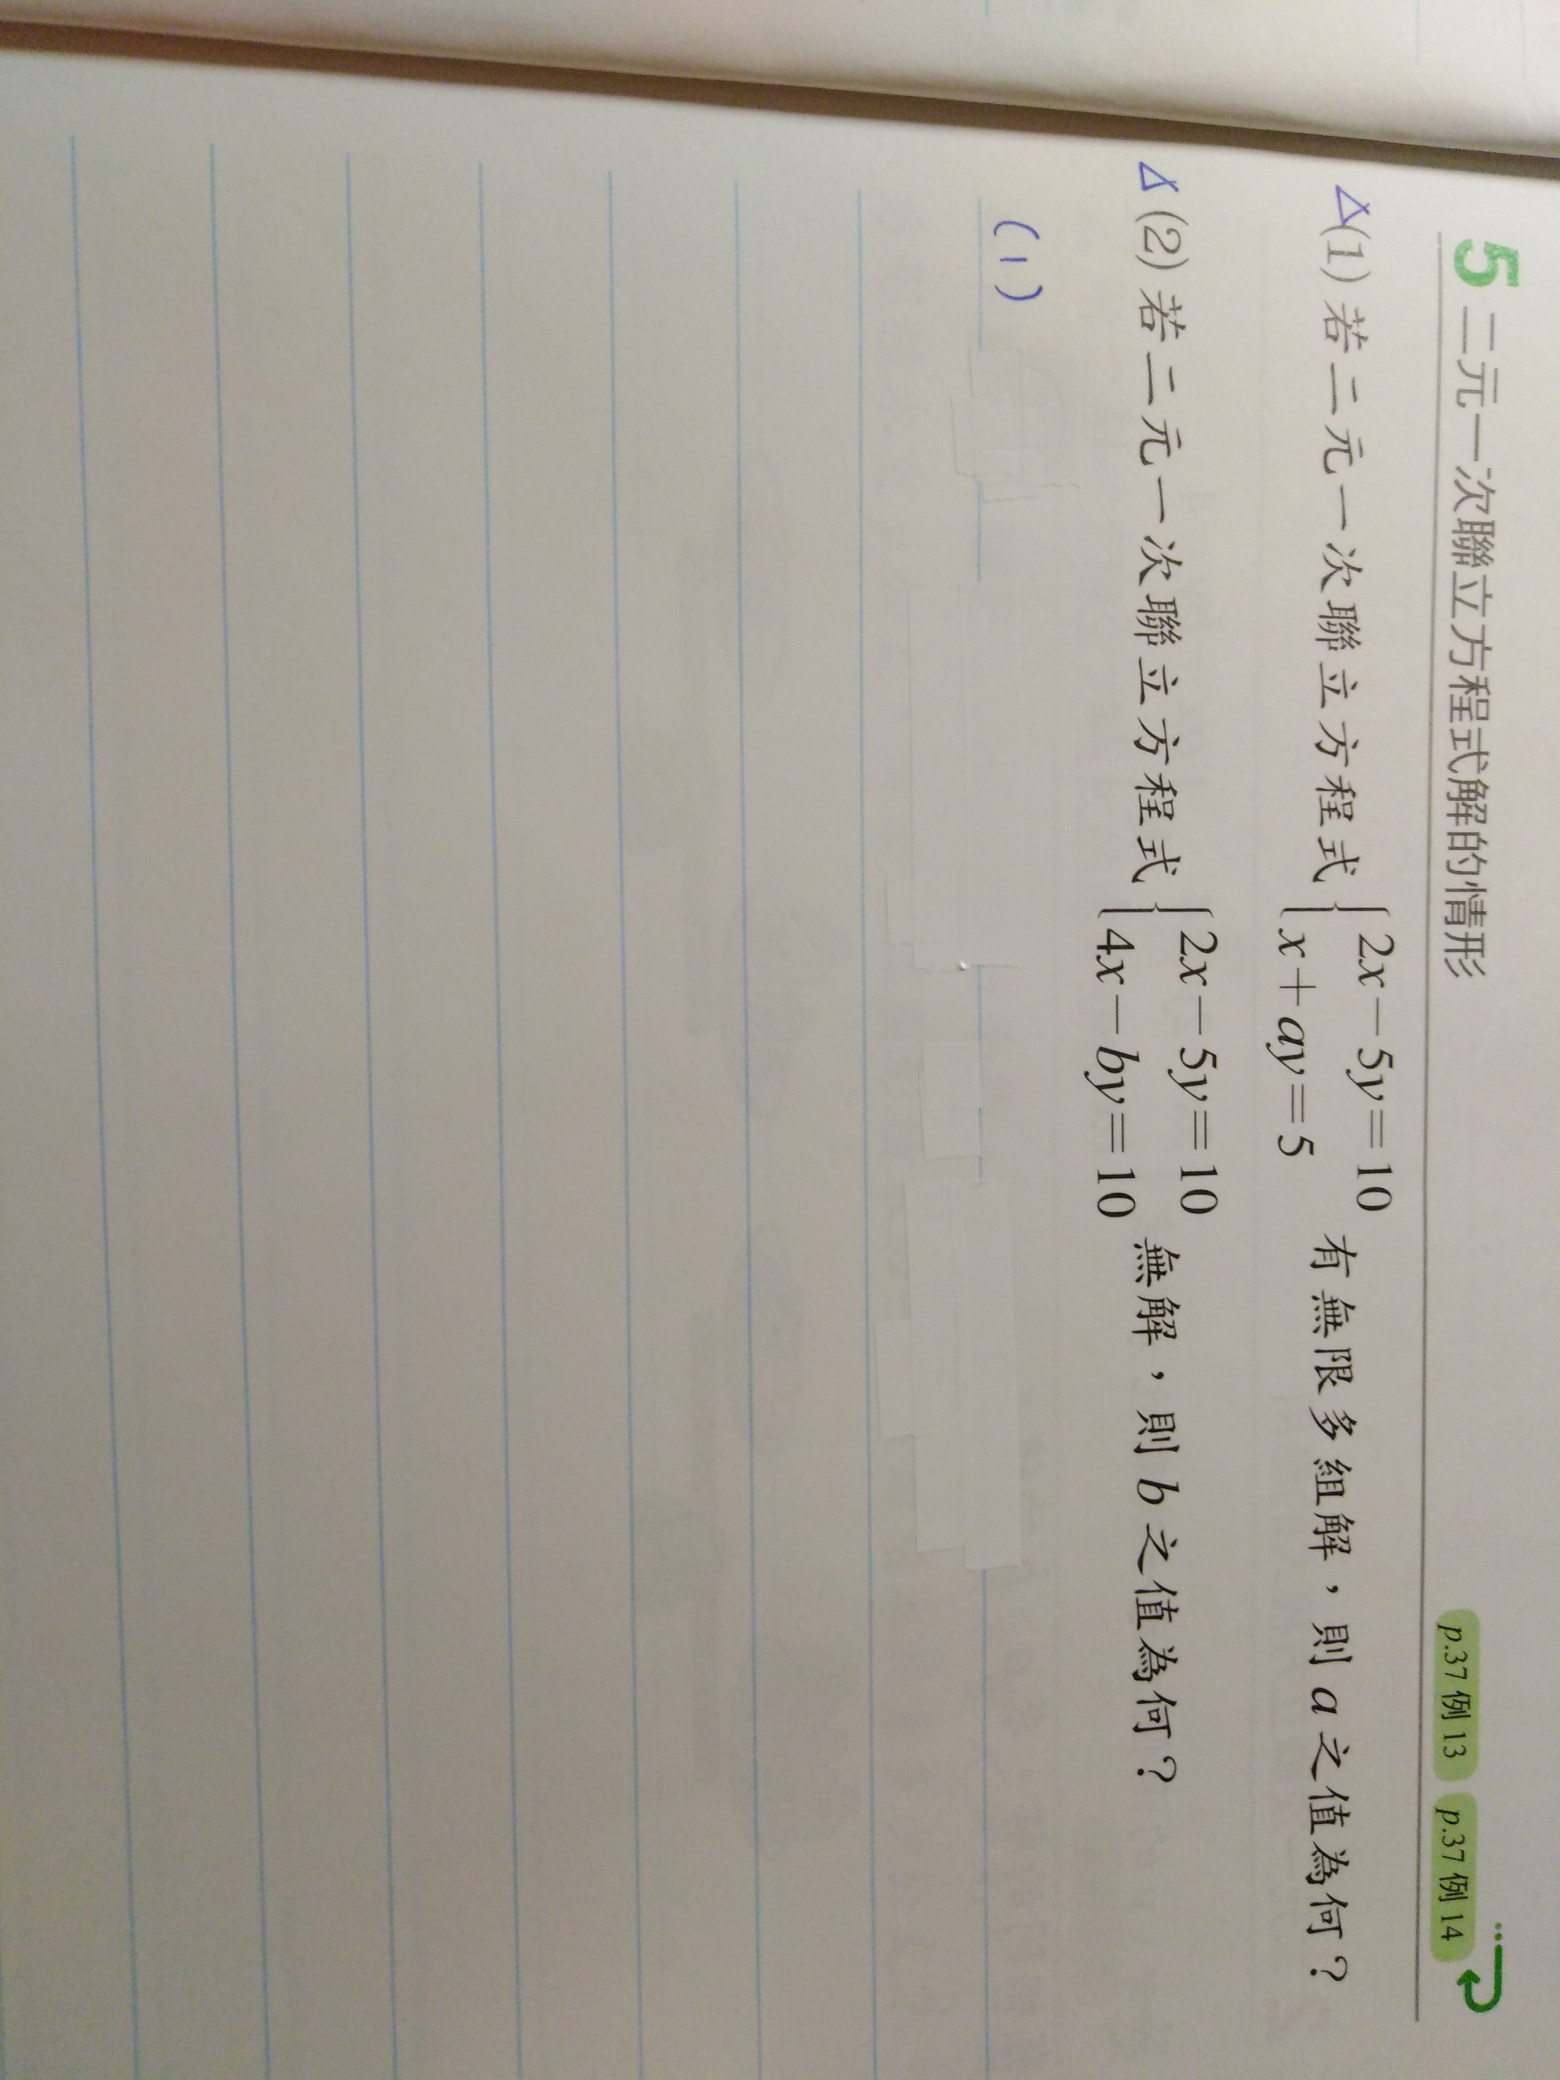 5 二元一次聯立方程式解的情形 p.37 例 13 p.37 例 14
Δ(1) 若二元一次聯立方程式 { 2x－5y＝10
x＋ay＝5 有無限多組解，則 a 之值為何？
Δ(2) 若二元一次聯立方程式 { 2x－5y＝10
4x－by＝10 無解，則 b 之值為何？
(1)